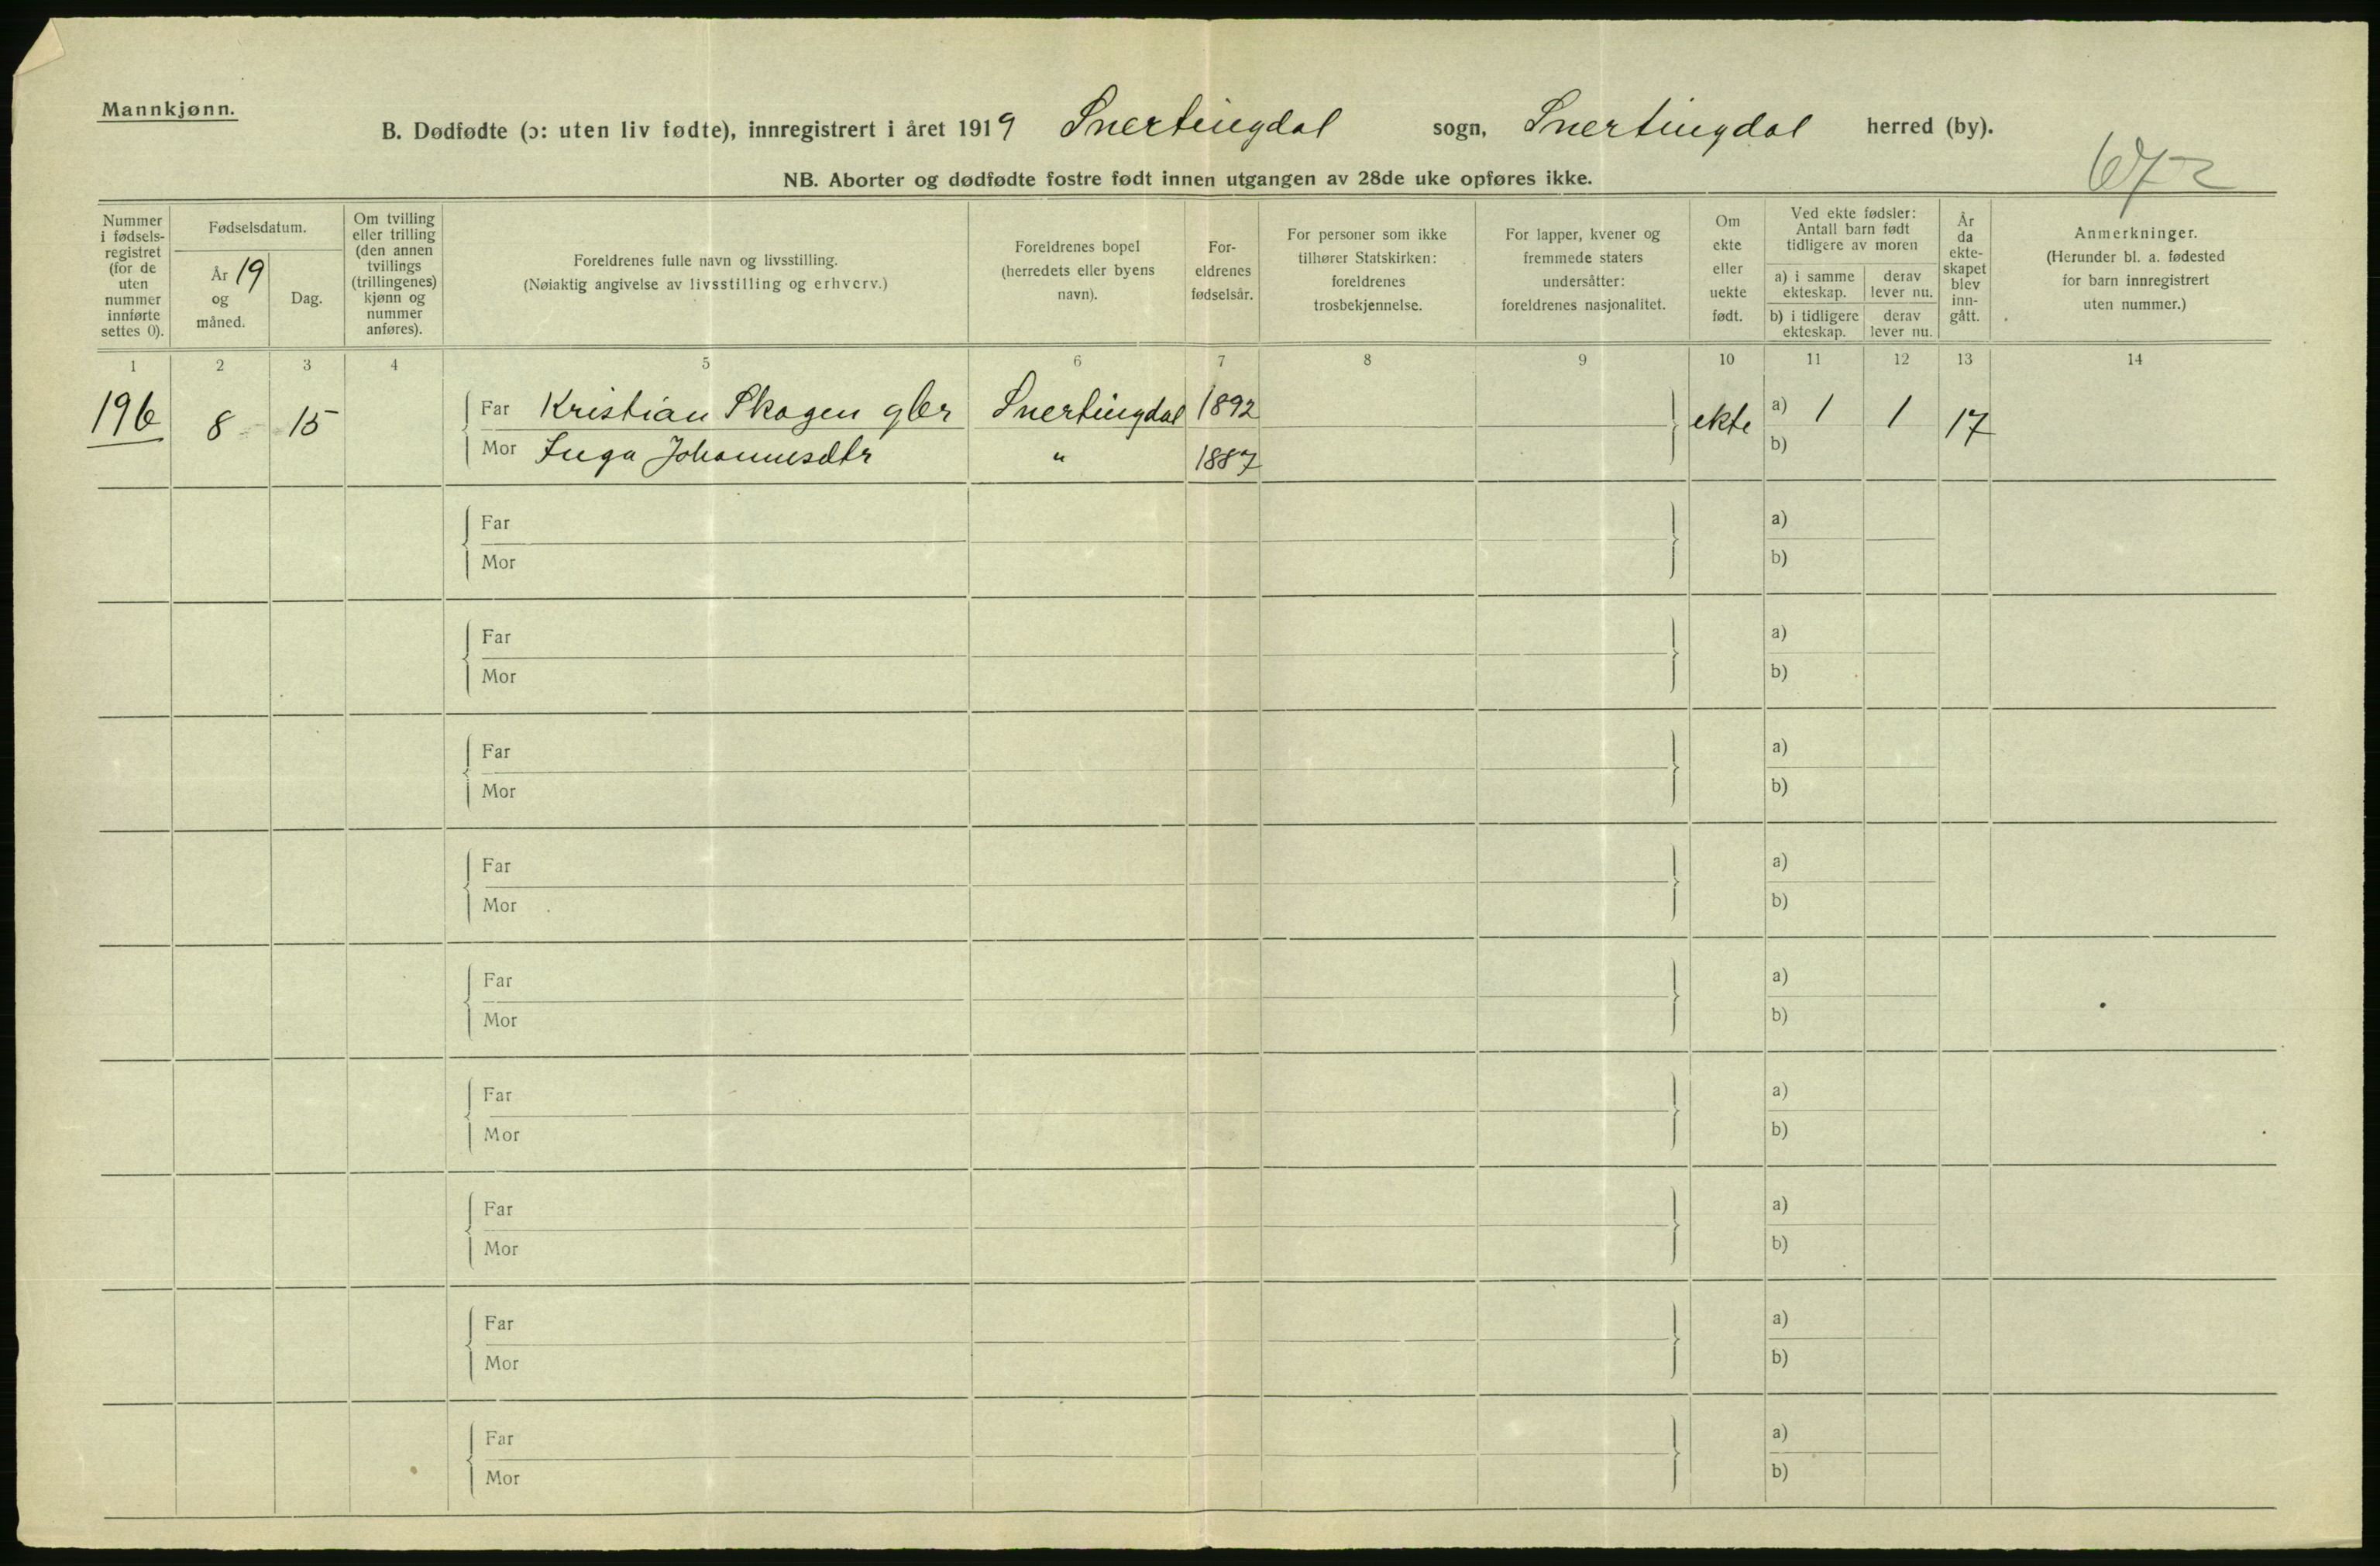 Mannkjønn.
B. Dødfødte (ɔ: uten liv fødte), innregistrert i året 1919 Snertingdal sogn, Snertingdal herred (by).
NB. Aborter og dødfødte fostre født innen utgangen av 28de uke opføres ikke.
672
Nummer i fødsels-registret (for de uten nummer innførte settes 0).
Fødselsdatum.
År 19 og måned.
Dag.
Om tvilling eller trilling (den annen tvillings (trillingenes) kjønn og nummer anføres).
Foreldrenes fulle navn og livsstilling.
(Nøiaktig angivelse av livsstilling og erhverv.)
Foreldrenes bopel (herredets eller byens navn).
For-eldrenes fødselsår.
For personer som ikke tilhører Statskirken: foreldrenes trosbekjennelse.
For lapper, kvener og fremmede staters undersåtter: foreldrenes nasjonalitet.
Om ekte eller uekte født.
Ved ekte fødsler: Antall barn født tidligere av moren
a) i samme ekteskap.
derav lever nu.
b) i tidligere ekteskap.
derav lever nu.
År da ekte-skapet blev inn-gått.
Anmerkninger.
(Herunder bl. a. fødested for barn innregistrert uten nummer.)
1 2 3 4 5 6 7 8 9 10 11 12 13 14
196 8 15 Far Kristian Skogen gbr Snertingdal 1892 ekte a) 1 1 17
Mor Inga Johannesdtr " 1887 b)
Far a)
Mor b)
Far a)
Mor b)
Far a)
Mor b)
Far a)
Mor b)
Far a)
Mor b)
Far a)
Mor b)
Far a)
Mor b)
Far a)
Mor b)
Far a)
Mor b)